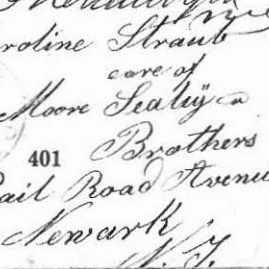 roline Straub
care of
Moore Sealy
Brothers
401
Rail Road Avenu
Newark
N. J.